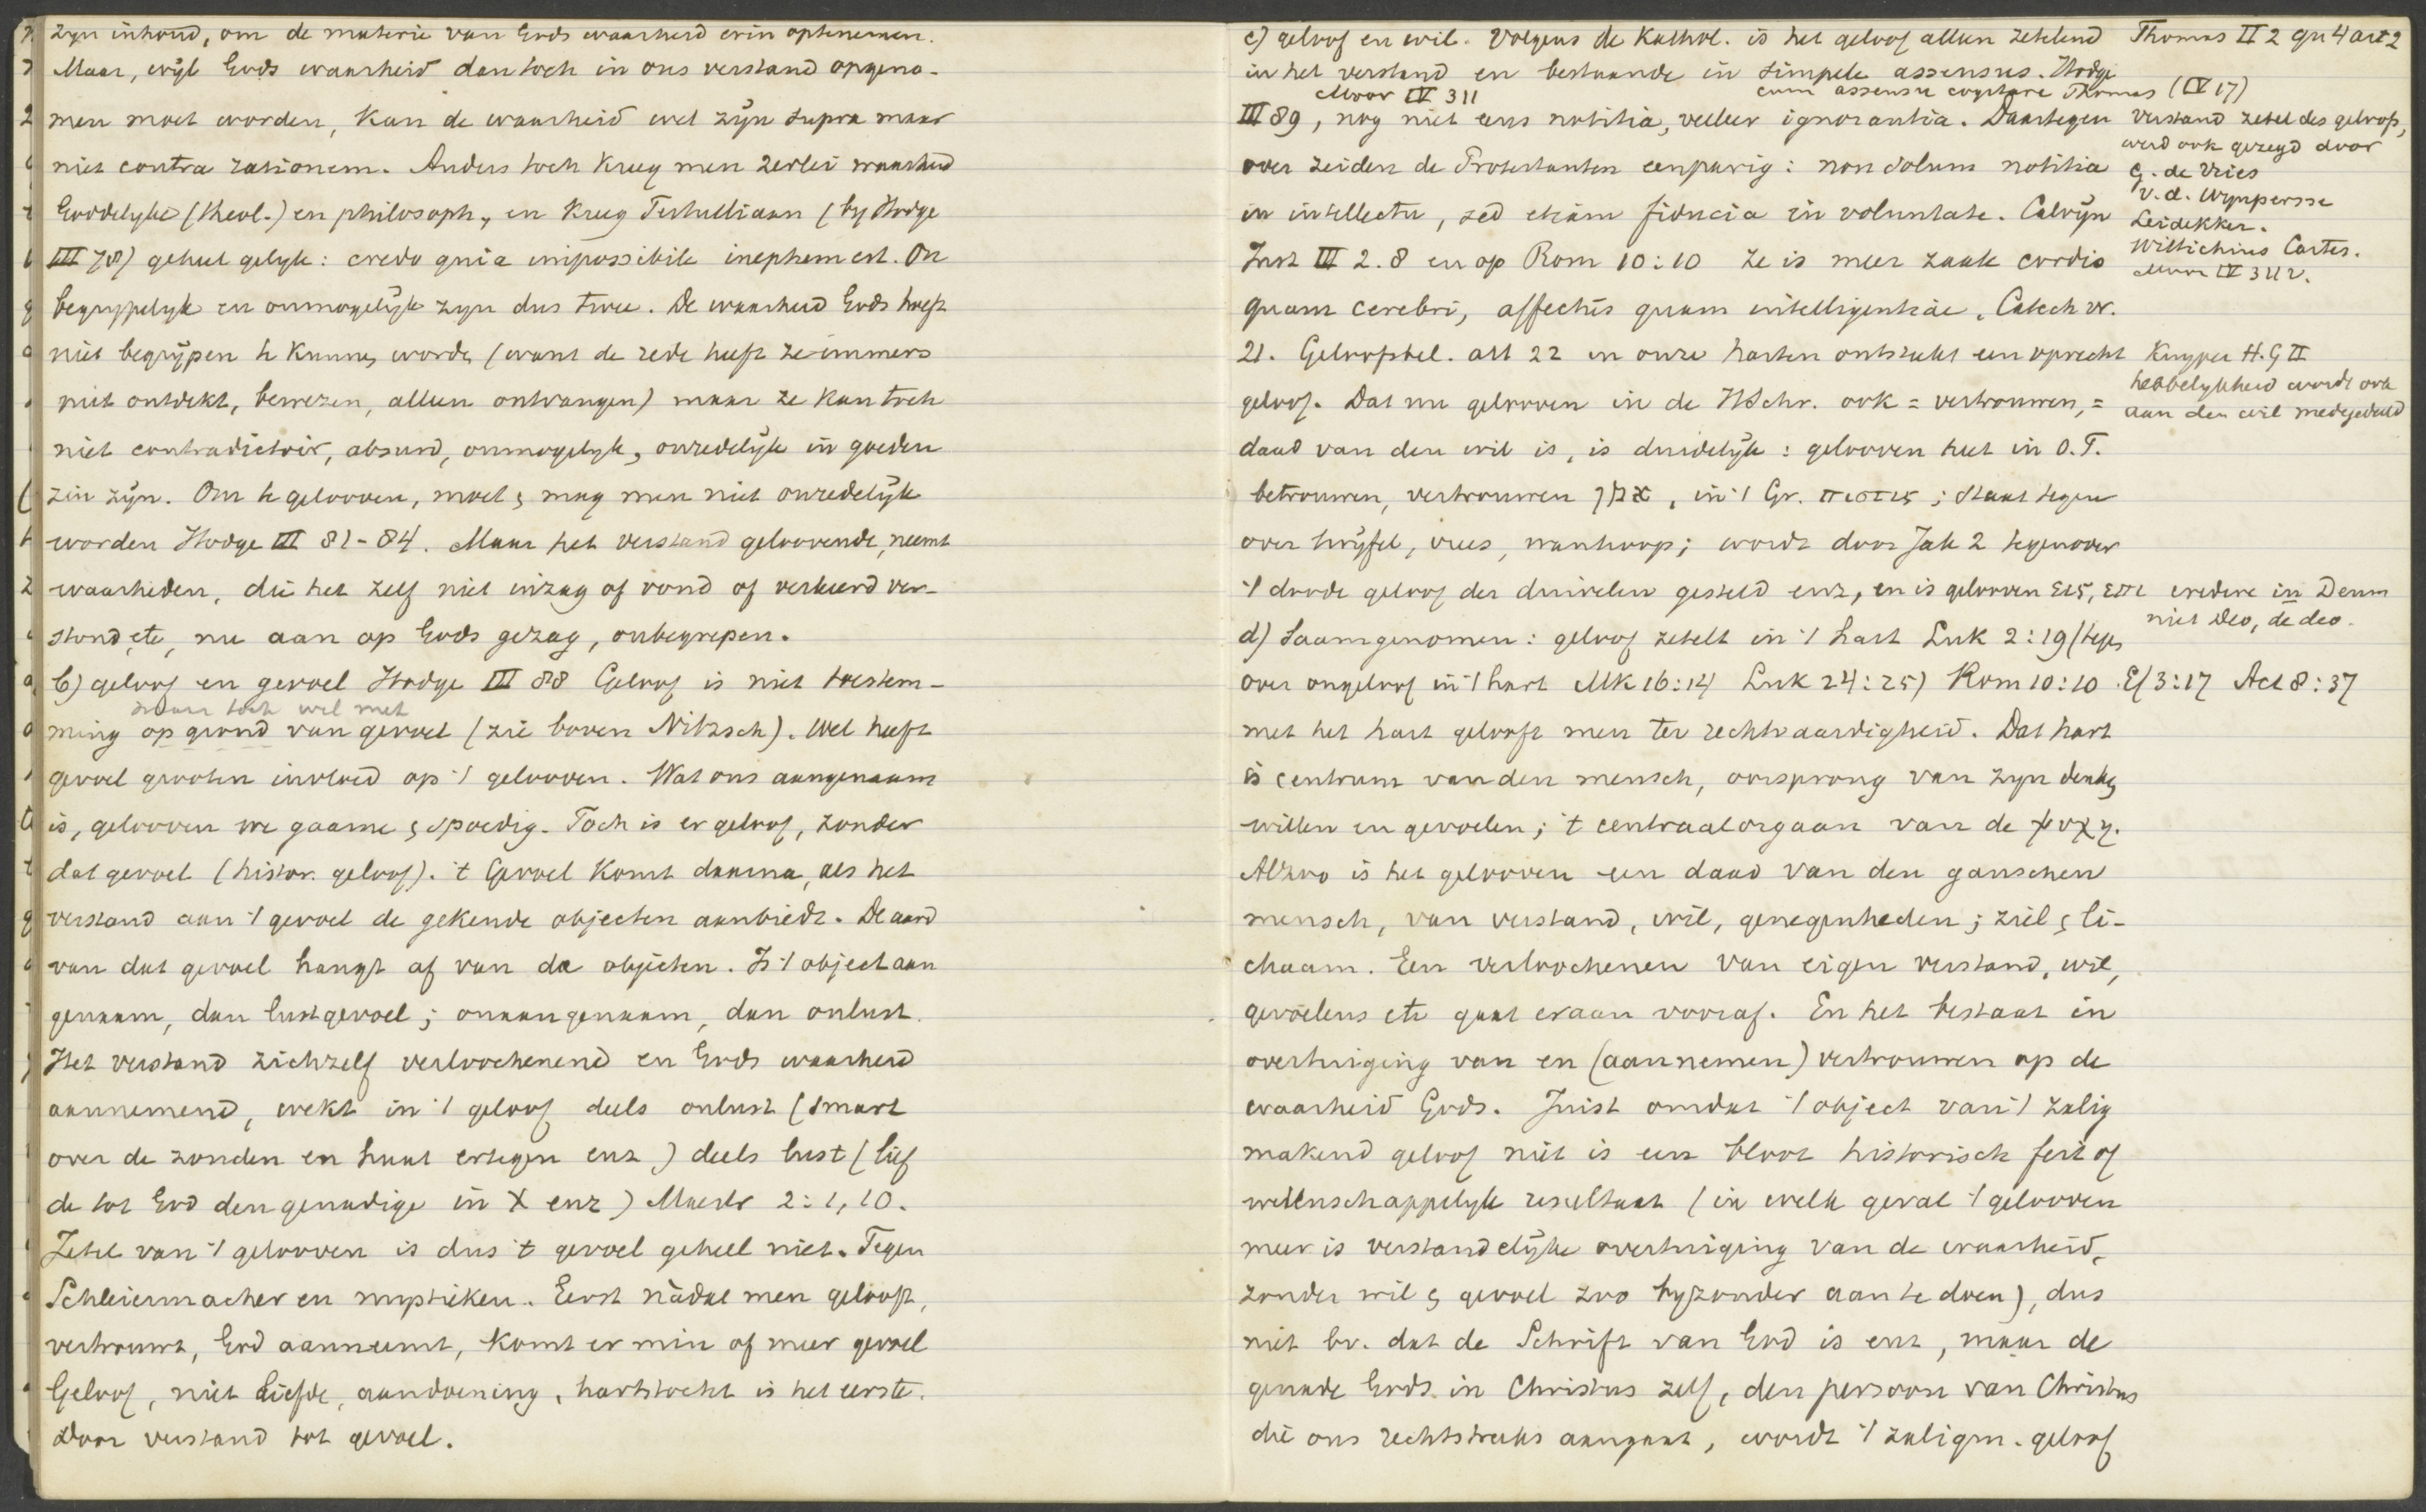 zyn inhoud, om de materie van Gods waarheid erin optenemen.
Maar, wyl Gods waarheid dan toch in ons verstand opgeno-
men moet worden, kan de waarheid wel zyn supra maar
niet contra rationem. Anders toch kreeg men 2erlei waarheid
Goddelyke (theol.) en philosoph., en kreeg Tertulliaan (by Hodge
III 78) geheel gelyk: credo quia impossibile ineptum est. On
begrypelyk en onmogelyk zyn dus twee. De waarheid Gods hoeft
niet begrypen te kunnen worden (want de rede heeft ze immers
niet ontdekt, bewezen, alleen ontvangen) maar ze kan toch
niet contradictoir, absurd, onmogelyk, onredelyk in goeden
zin zyn. Om te gelooven, moet & mag men niet onredelyk
worden Hodge III 81-84. Maar het verstand geloovende, neemt
waarheden, die het zelf niet inzag of vond of verkeerd ver-
stond, etc, nu aan op Gods gezag, onbegrepen.
b) geloof en gevoel Hodge III 88 Geloof is niet toestem-
maar toch wel met
ming op grond van gevoel (zie boven Nitzsch). Wel heeft
gevoel grooten invloed op 't gelooven. Wat ons aangenaam
is, gelooven we gaarne & spoedig. Toch is er geloof, zonder
dat gevoel (histor. geloof). 't Gevoel komt daarna, als het
verstand aan 't gevoel de gekende objecten aanbiedt. De aard
van dat gevoel hangt af van de objecten. Is 't object aan
genaam, dan lustgevoel; onaangenaam, dan onlust.
Het verstand zichzelf verloochenend en Gods waarheid
aannemend, wekt in 't geloof deels onlust (smart
over de zonden en haat ertegen enz) deels lust (lief
de tot God den genadige in X enz) Maestr 2:1,10.
Zetel van 't gelooven is dus 't gevoel geheel niet. Tegen
Schleiermacher en mystieken. Eerst nàdat men gelooft,
vertrouwt, God aanneemt, komt er min of meer gevoel
Geloof, niet liefde, aandoening, hartstocht is het eerste.
Door verstand tot gevoel.
c) geloof en wil. Volgens de Kathol. is het geloof alleen zetelend
in het verstand en bestaande in simpele assensus. Hodge
Moor IV 311 cum assensu cogitare Thomas (IV 17)
III 89, nog niet eens notitia, veeleer ignorantia. Daartegen
over zeiden de Protestanten eenparig: non solum notitia
in intellectu, sed etiam fiducia in voluntate. Calvyn
Inst III 2.8 en op Rom 10:10 ze is meer zaak cordis
quam cerebri, affectûs quam intelligentiae. Catech vr.
21. Geloofsbel. art 22 in onze harten ontsteekt een oprecht
geloof. Dat nu gelooven in de HSchr. ook = vertrouwen, =
daad van den wil is, is duidelyk: gelooven heet in O.T.
betrouwen, vertrouwen אמן, in 't Gr. πιστις; staat tegen
over twyfel, vrees, wanhoop; wordt door Jak 2 tegenover
't doode geloof der duivelen gesteld enz, en is gelooven εις, επι
d) Saamgenomen: geloof zetelt in 't hart Luk 2:19 (tegen
over ongeloof in 't hart Mk 16:14 Luk 24:25) Rom 10:10 Ef 3:17 Act 8:37
met het hart gelooft men ter rechtvaardigheid. Dat hart
is centrum van den mensch, oorsprong van zyn denken
willen en gevoelen; 't centraalorgaan van de ψυχη.
Alzoo is het gelooven een daad van den ganschen
mensch, van verstand, wil, genegenheden; ziel & li-
chaam. Een verloochenen van eigen verstand, wil,
gevoelens etc gaat eraan vooraf. En het bestaat in
overtuiging van en (aannemen) vertrouwen op de
waarheid Gods. Juist omdat 't object van 't zalig
makend geloof niet is een bloot historisch feit of
wetenschappelyk resultaat (in welk geval 't gelooven
meer is verstandelyke overtuiging van de waarheid,
zonder wil & gevoel zoo byzonder aan te doen), dus
niet bv. dat de Schrift van God is enz, maar de
genade Gods in Christus zelf, den persoon van Christus
die ons rechtstreeks aangaat, wordt 't zaligm. geloof
Thomas II 2 qu 4 art 2
Verstand zetel des geloofs,
werd ook gezegd door
G. de Vries
v.d. Wynpersse
Leidekker.
Wittichius Cartes.
Moor IV 311v.
Kuyper H.G II
hebbelykheid wordt ook
aan den wil medegedeeld
credere in Deum
niet Deo, de deo.